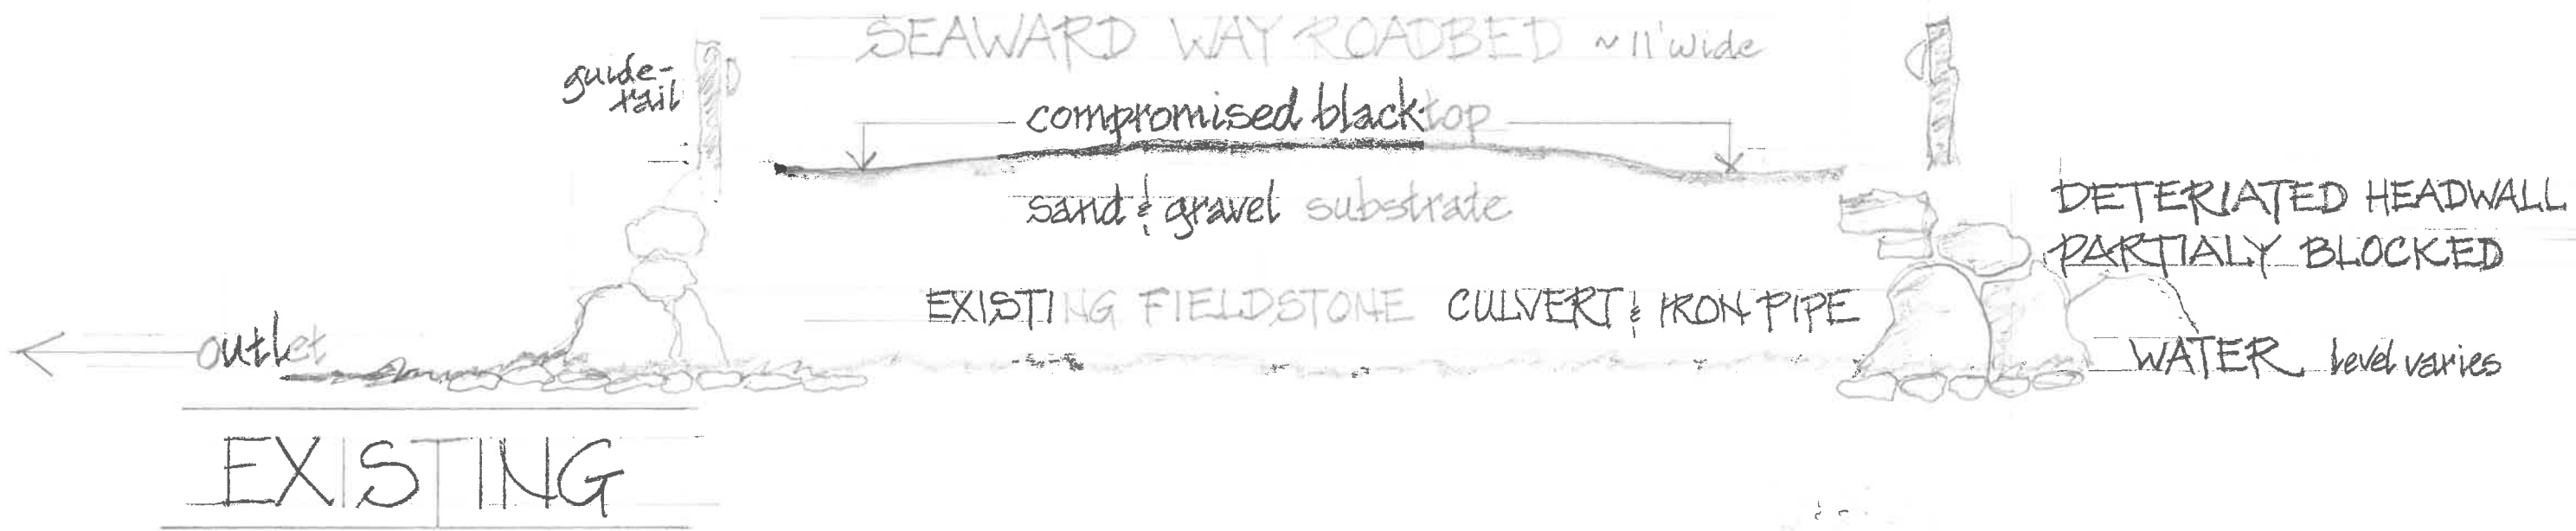 SEAWARD WAY ROADBED ~ 11' wide
guide-
rail
compromised blacktop
sand & gravel substrate
DETERIATED HEADWALL
PARTIALY BLOCKED
EXISTING FIELDSTONE CULVERT & IRON PIPE
outlet
WATER level varies
EXISTING